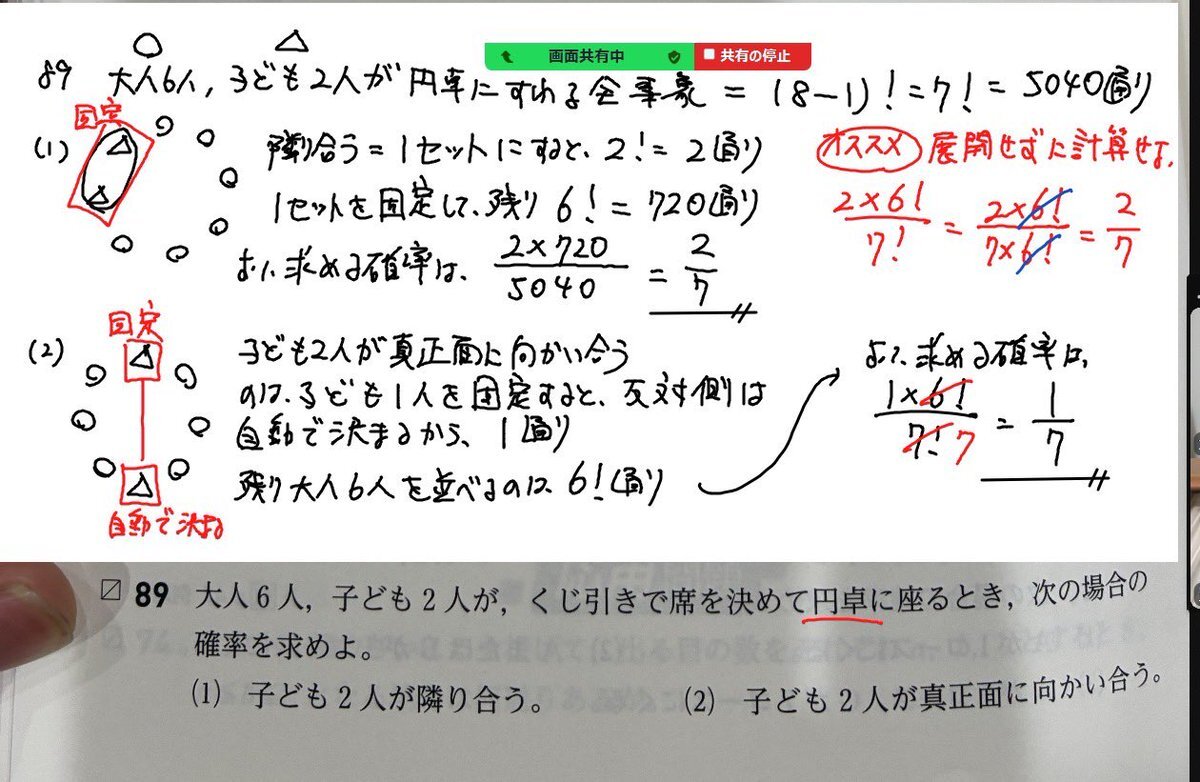 画面共有中
共有の停止
89 大人6人, 子ども2人が円卓にすわる全事象 = (8-1)! = 7! = 5040通り
固定
(1) 隣り合う=1セットにすると、2! = 2通り
1セットを固定して、残り 6! = 720通り
よって求める確率は、 2×720/5040 = 2/7
オススメ 展開せずに計算せよ,
2×6!/7! = 2×6!/7×6! = 2/7
固定
(2) 子ども2人が真正面に向かい合う
のは、子ども1人を固定すると、反対側は
自動で決まるから、1通り
残り大人6人を並べるのは、6!通り
自動で決まる
よって求める確率は、
1×6!/7! 7 = 1/7
89 大人6人，子ども2人が，くじ引きで席を決めて円卓に座るとき，次の場合の
確率を求めよ。
(1) 子ども2人が隣り合う。 (2) 子ども2人が真正面に向かい合う。